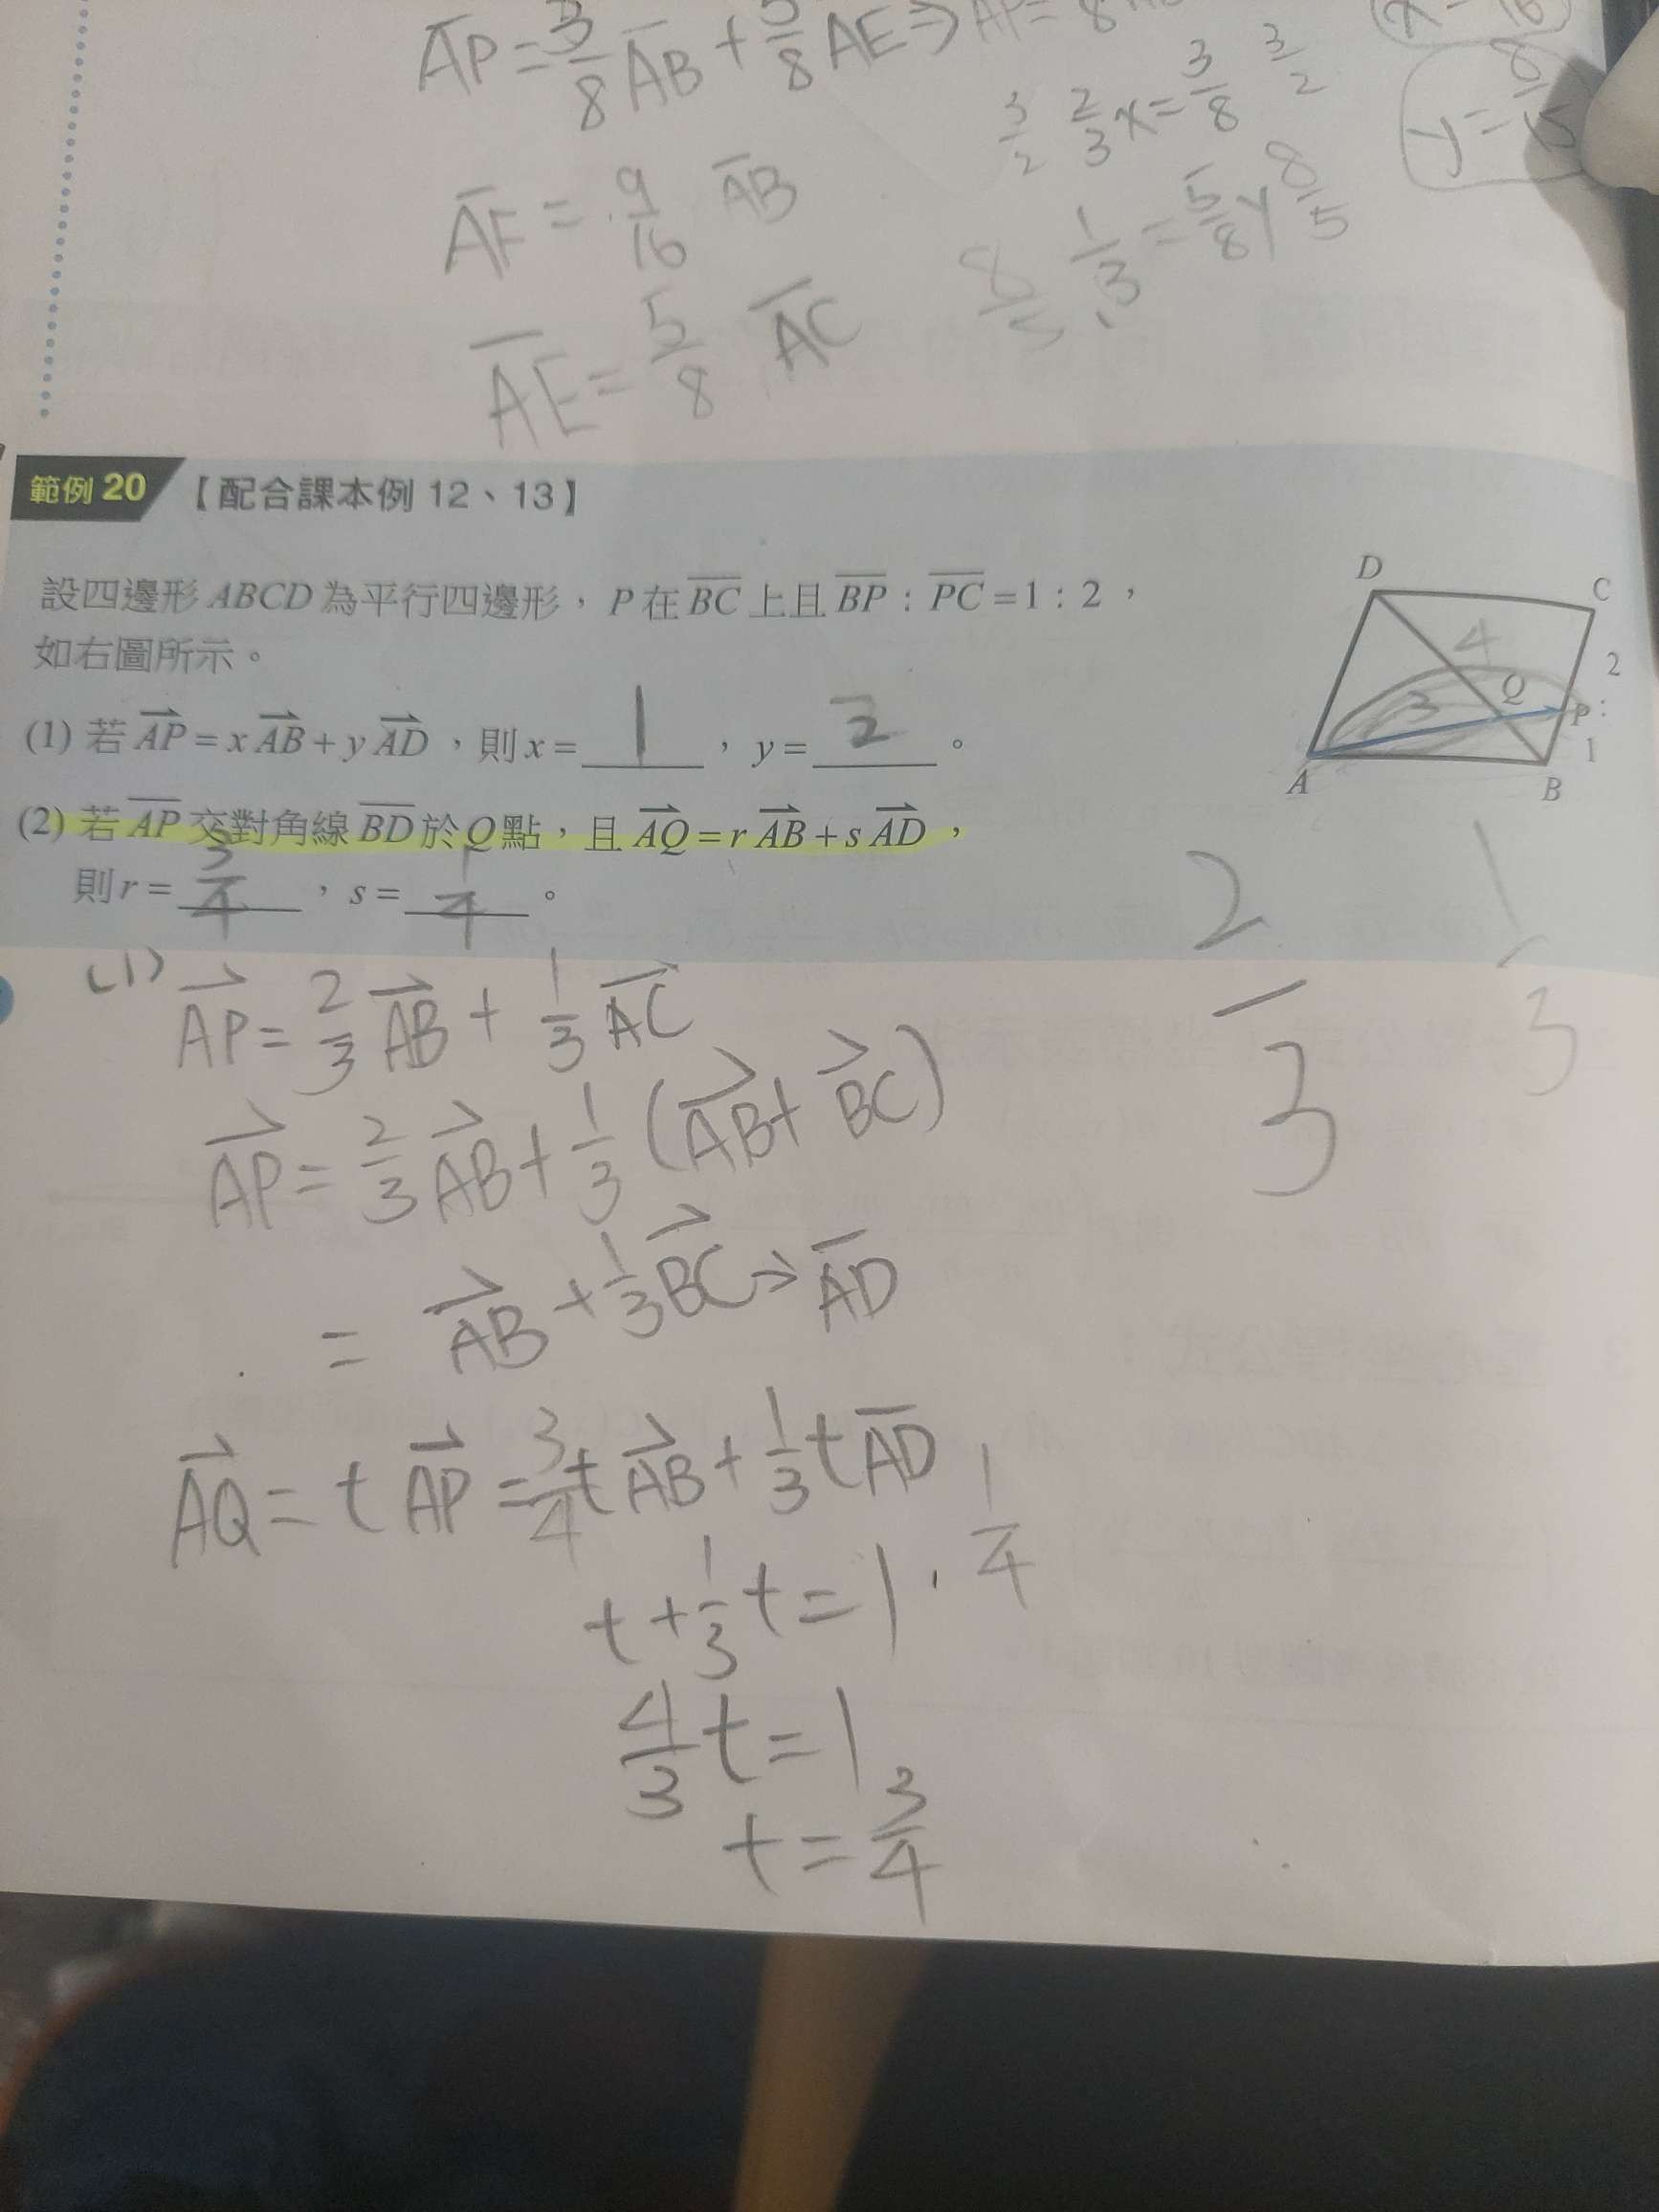 AP = 3/8 AB + 5/8 AE ⇒ AP = 8
3/2 2/3 x = 3/8 3/2
y = 8/15
AF = 9/16 AB
8/5 1/3 = 5/8 y 8/5
AE = 5/8 AC
範例 20 【配合課本例 12、13】
設四邊形 ABCD 為平行四邊形，P 在 BC 上且 BP：PC = 1：2，
如右圖所示。
(1) 若 AP = x AB + y AD，則 x = 1，y = 2。
(2) 若 AP 交對角線 BD 於 Q 點，且 AQ = r AB + s AD，
則 r = 3/4，s = 1/4。
D
C
4
2
Q
3
P
:
1
A
B
2/3 1/3
(1) AP = 2/3 AB + 1/3 AC
AP = 2/3 AB + 1/3 (AB + BC)
= AB + 1/3 BC → AD
AQ = t AP = 3/4 t AB + 1/3 t AD
1/4
t + 1/3 t = 1
4/3 t = 1
t = 3/4